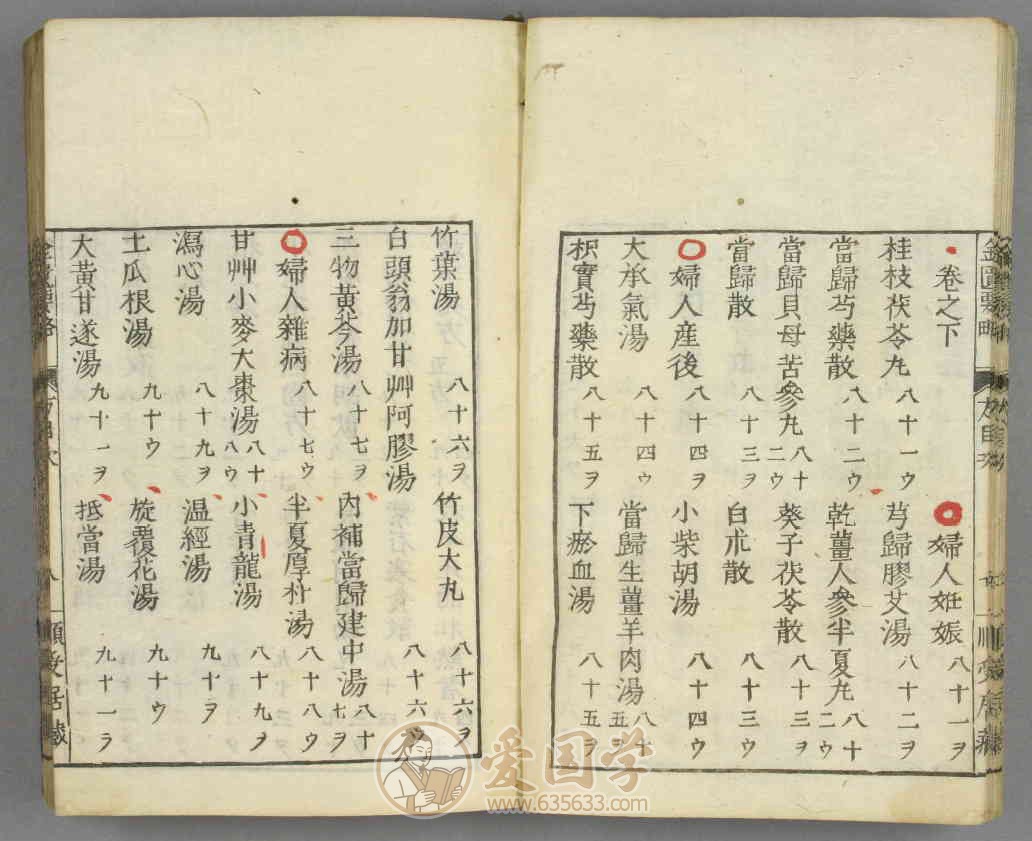 卷之下
婦人妊娠 八十一ヲ
桂枝茯苓丸 八十一ウ
芎歸膠艾湯 八十二ヲ
當歸芍藥散 八十二ウ
乾薑人參半夏丸 八十二ウ
當歸貝母苦參丸 八十二ウ
葵子茯苓散 八十三ヲ
當歸散 八十三ヲ
白朮散 八十三ウ
婦人産後 八十四ウ
小柴胡湯 八十四ウ
大承氣湯 八十四ウ
當歸生薑羊肉湯 八十五ヲ
枳實芍藥散 八十五ヲ
下瘀血湯 八十五ヲ
竹葉湯 八十六ヲ
竹皮大丸 八十六ヲ
白頭翁加甘艸阿膠湯 八十六ウ
三物黃芩湯 八十七ヲ
內補當歸建中湯 八十七ヲ
婦人雜病 八十七ウ
半夏厚朴湯 八十八ウ
甘艸小麥大棗湯 八十八ウ
小青龍湯 八十九ヲ
瀉心湯 八十九ヲ
温經湯 九十ヲ
土瓜根湯 九十ウ
旋覆花湯 九十ウ
大黃甘遂湯 九十一ヲ
抵當湯 九十一ヲ
爱国学
www.635633.com